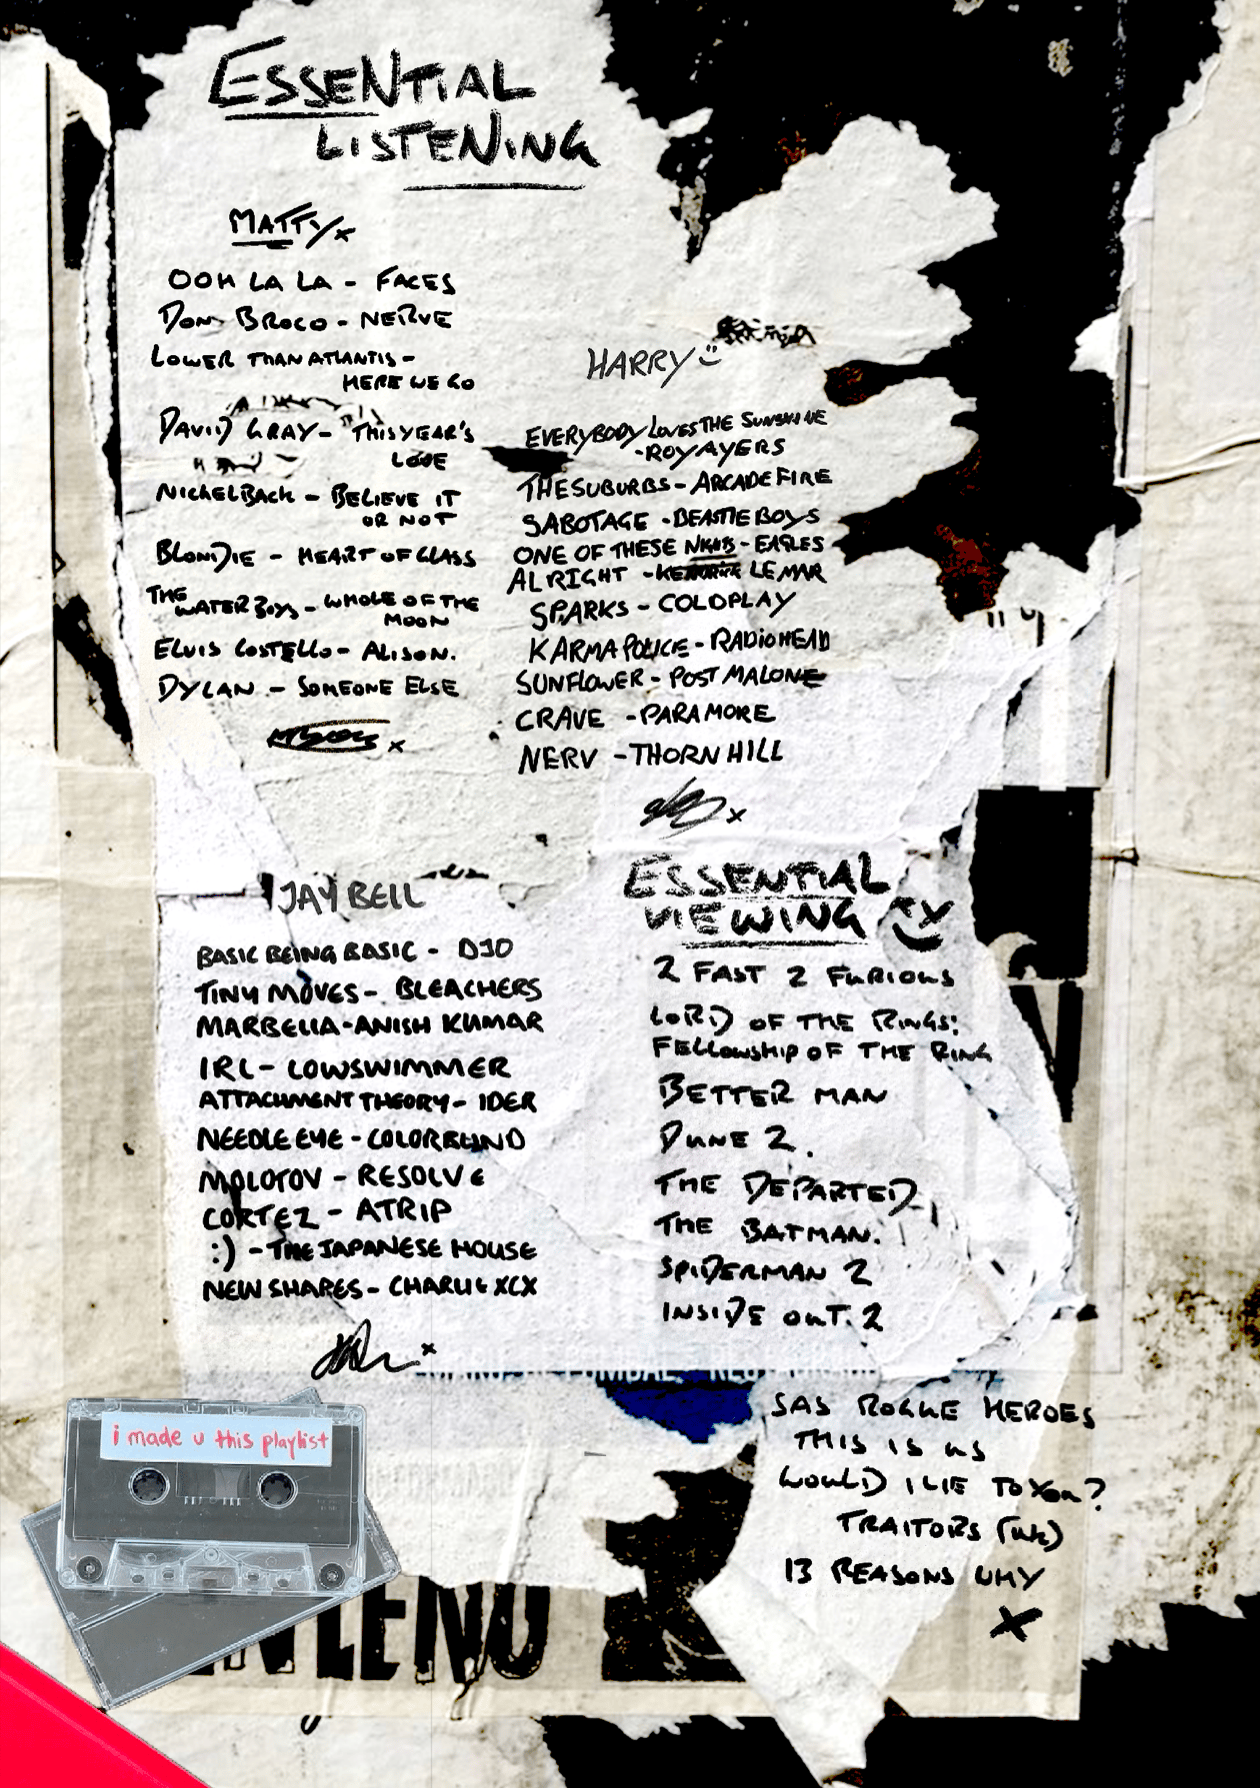 ESSENTIAL
LISTENING
MATTY x
OOH LA LA - FACES
DON BROCO - NERVE
LOWER THAN ATLANTIS -
HERE WE GO
DAVID GRAY - THIS YEAR'S
LOVE
NICKELBACK - BELIEVE IT
OR NOT
BLONDIE - HEART OF GLASS
THE
WATERBOYS - WHOLE OF THE
MOON
ELVIS COSTELLO - ALISON.
DYLAN - SOMEONE ELSE
x
HARRY :)
EVERYBODY LOVES THE SUNSHINE
- ROY AYERS
THE SUBURBS - ARCADE FIRE
SABOTAGE - BEASTIE BOYS
ONE OF THESE NIGHTS - EAGLES
ALRIGHT - KENDRICK LEMAR
SPARKS - COLDPLAY
KARMA POLICE - RADIOHEAD
SUNFLOWER - POST MALONE
CRAVE - PARAMORE
NERV - THORNHILL
x
JAY BELL
BASIC BEING BASIC - DJO
TINY MOVES - BLEACHERS
MARBELLA - ANISH KUMAR
IRL - LOWSWIMMER
ATTACHMENT THEORY - IDER
NEEDLE EYE - COLORBLIND
MOLOTOV - RESOLVE
CORTEZ - ATRIP
:) - THE JAPANESE HOUSE
NEW SHAPES - CHARLI XCX
x
ESSENTIAL
VIEWING
2 FAST 2 FURIOUS
LORD OF THE RINGS:
FELLOWSHIP OF THE RING
BETTER MAN
DUNE 2.
THE DEPARTED
THE BATMAN.
SPIDERMAN 2
INSIDE OUT. 2
SAS ROGUE HEROES
THIS IS US
WOULD I LIE TO YOU?
TRAITORS (UK)
13 REASONS WHY
x
i made u this playlist